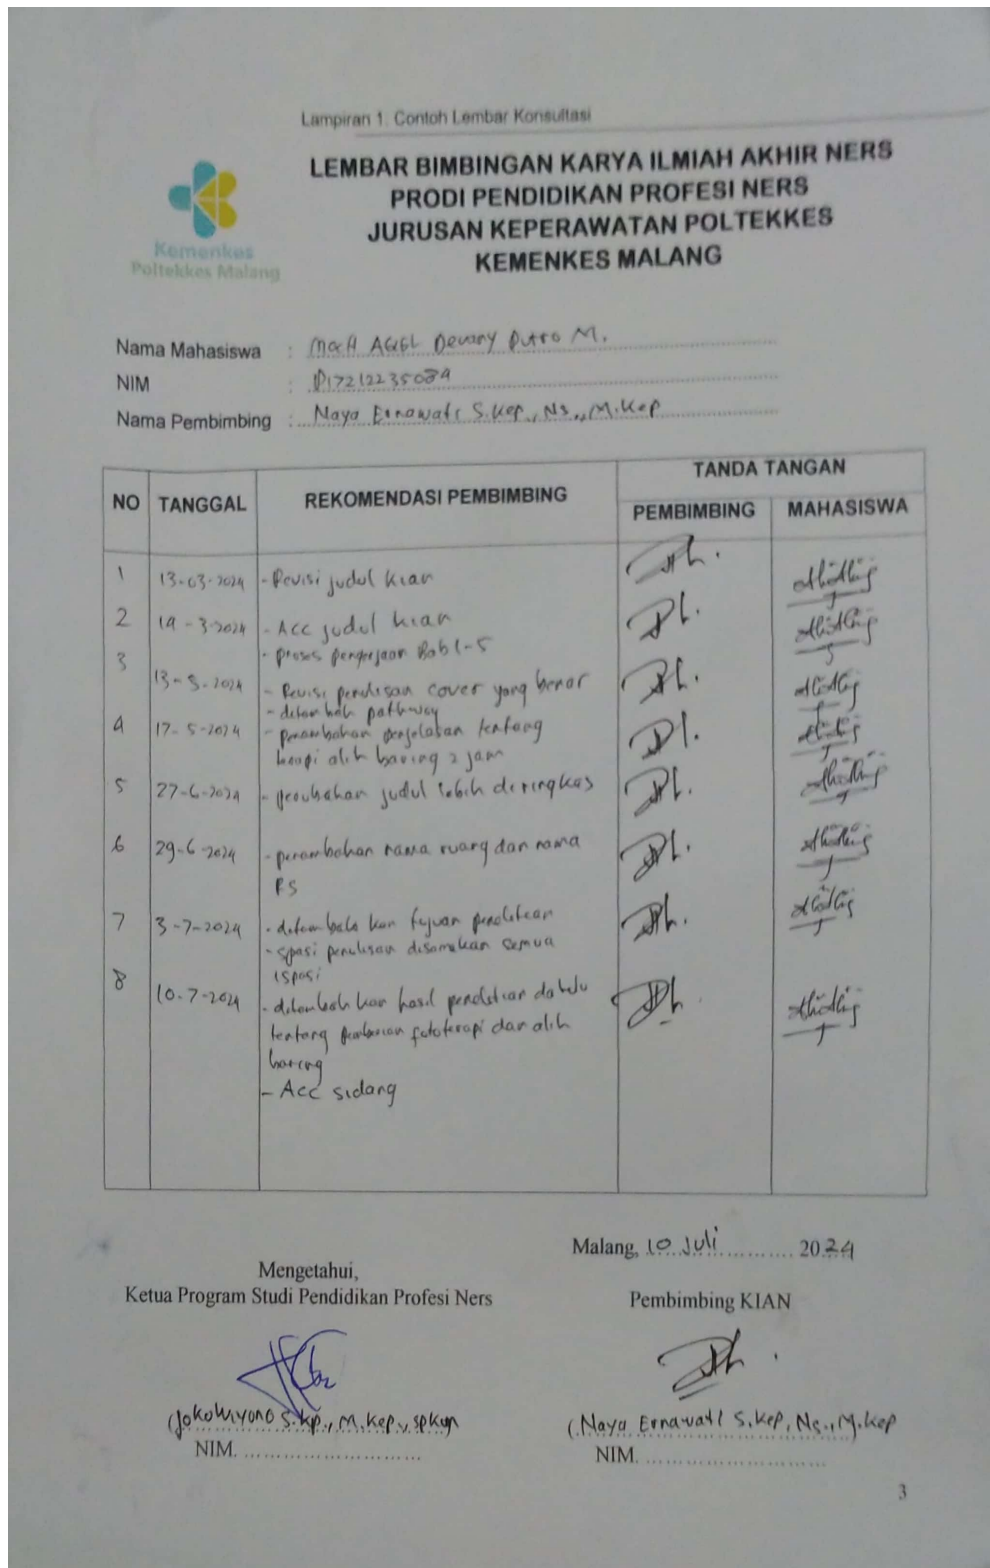 Lampiran 1. Contoh Lembar Konsultasi
LEMBAR BIMBINGAN KARYA ILMIAH AKHIR NERS
PRODI PENDIDIKAN PROFESI NERS
JURUSAN KEPERAWATAN POLTEKKES
KEMENKES MALANG
Kemenkes
Poltekkes Malang
Nama Mahasiswa : Moch Aqil Devary Putro M.
NIM : P17212235084
Nama Pembimbing : Naya Ernawati S.Kep., Ns., M.Kep
NO TANGGAL REKOMENDASI PEMBIMBING TANDA TANGAN
PEMBIMBING MAHASISWA
1 13-03-2024 - Revisi judul kian
2 19-3-2024 - Acc judul kian
- proses pengerjaan Bab 1-5
3 13-5-2024 - Revisi penulisan cover yang benar
- ditambah pathway
4 17-5-2024 - penambahan penjelasan tentang
terapi alih baring 2 jam
5 27-6-2024 - perubahan judul lebih diringkas
6 29-6-2024 - penambahan nama ruang dan nama
RS
7 3-7-2024 - ditambahkan tujuan penelitian
- spasi penulisan disamakan semua
1 spasi
8 10-7-2024 - ditambahkan hasil penelitian dahulu
tentang pemberian fototerapi dan alih
baring
- Acc sidang
Malang, 10 Juli 2024
Mengetahui,
Ketua Program Studi Pendidikan Profesi Ners
Pembimbing KIAN
(Joko Wiyono S.Kp., M.Kep., Sp.Kom
NIM.
(Naya Ernawati S.Kep, Ns., M.Kep
NIM.
3